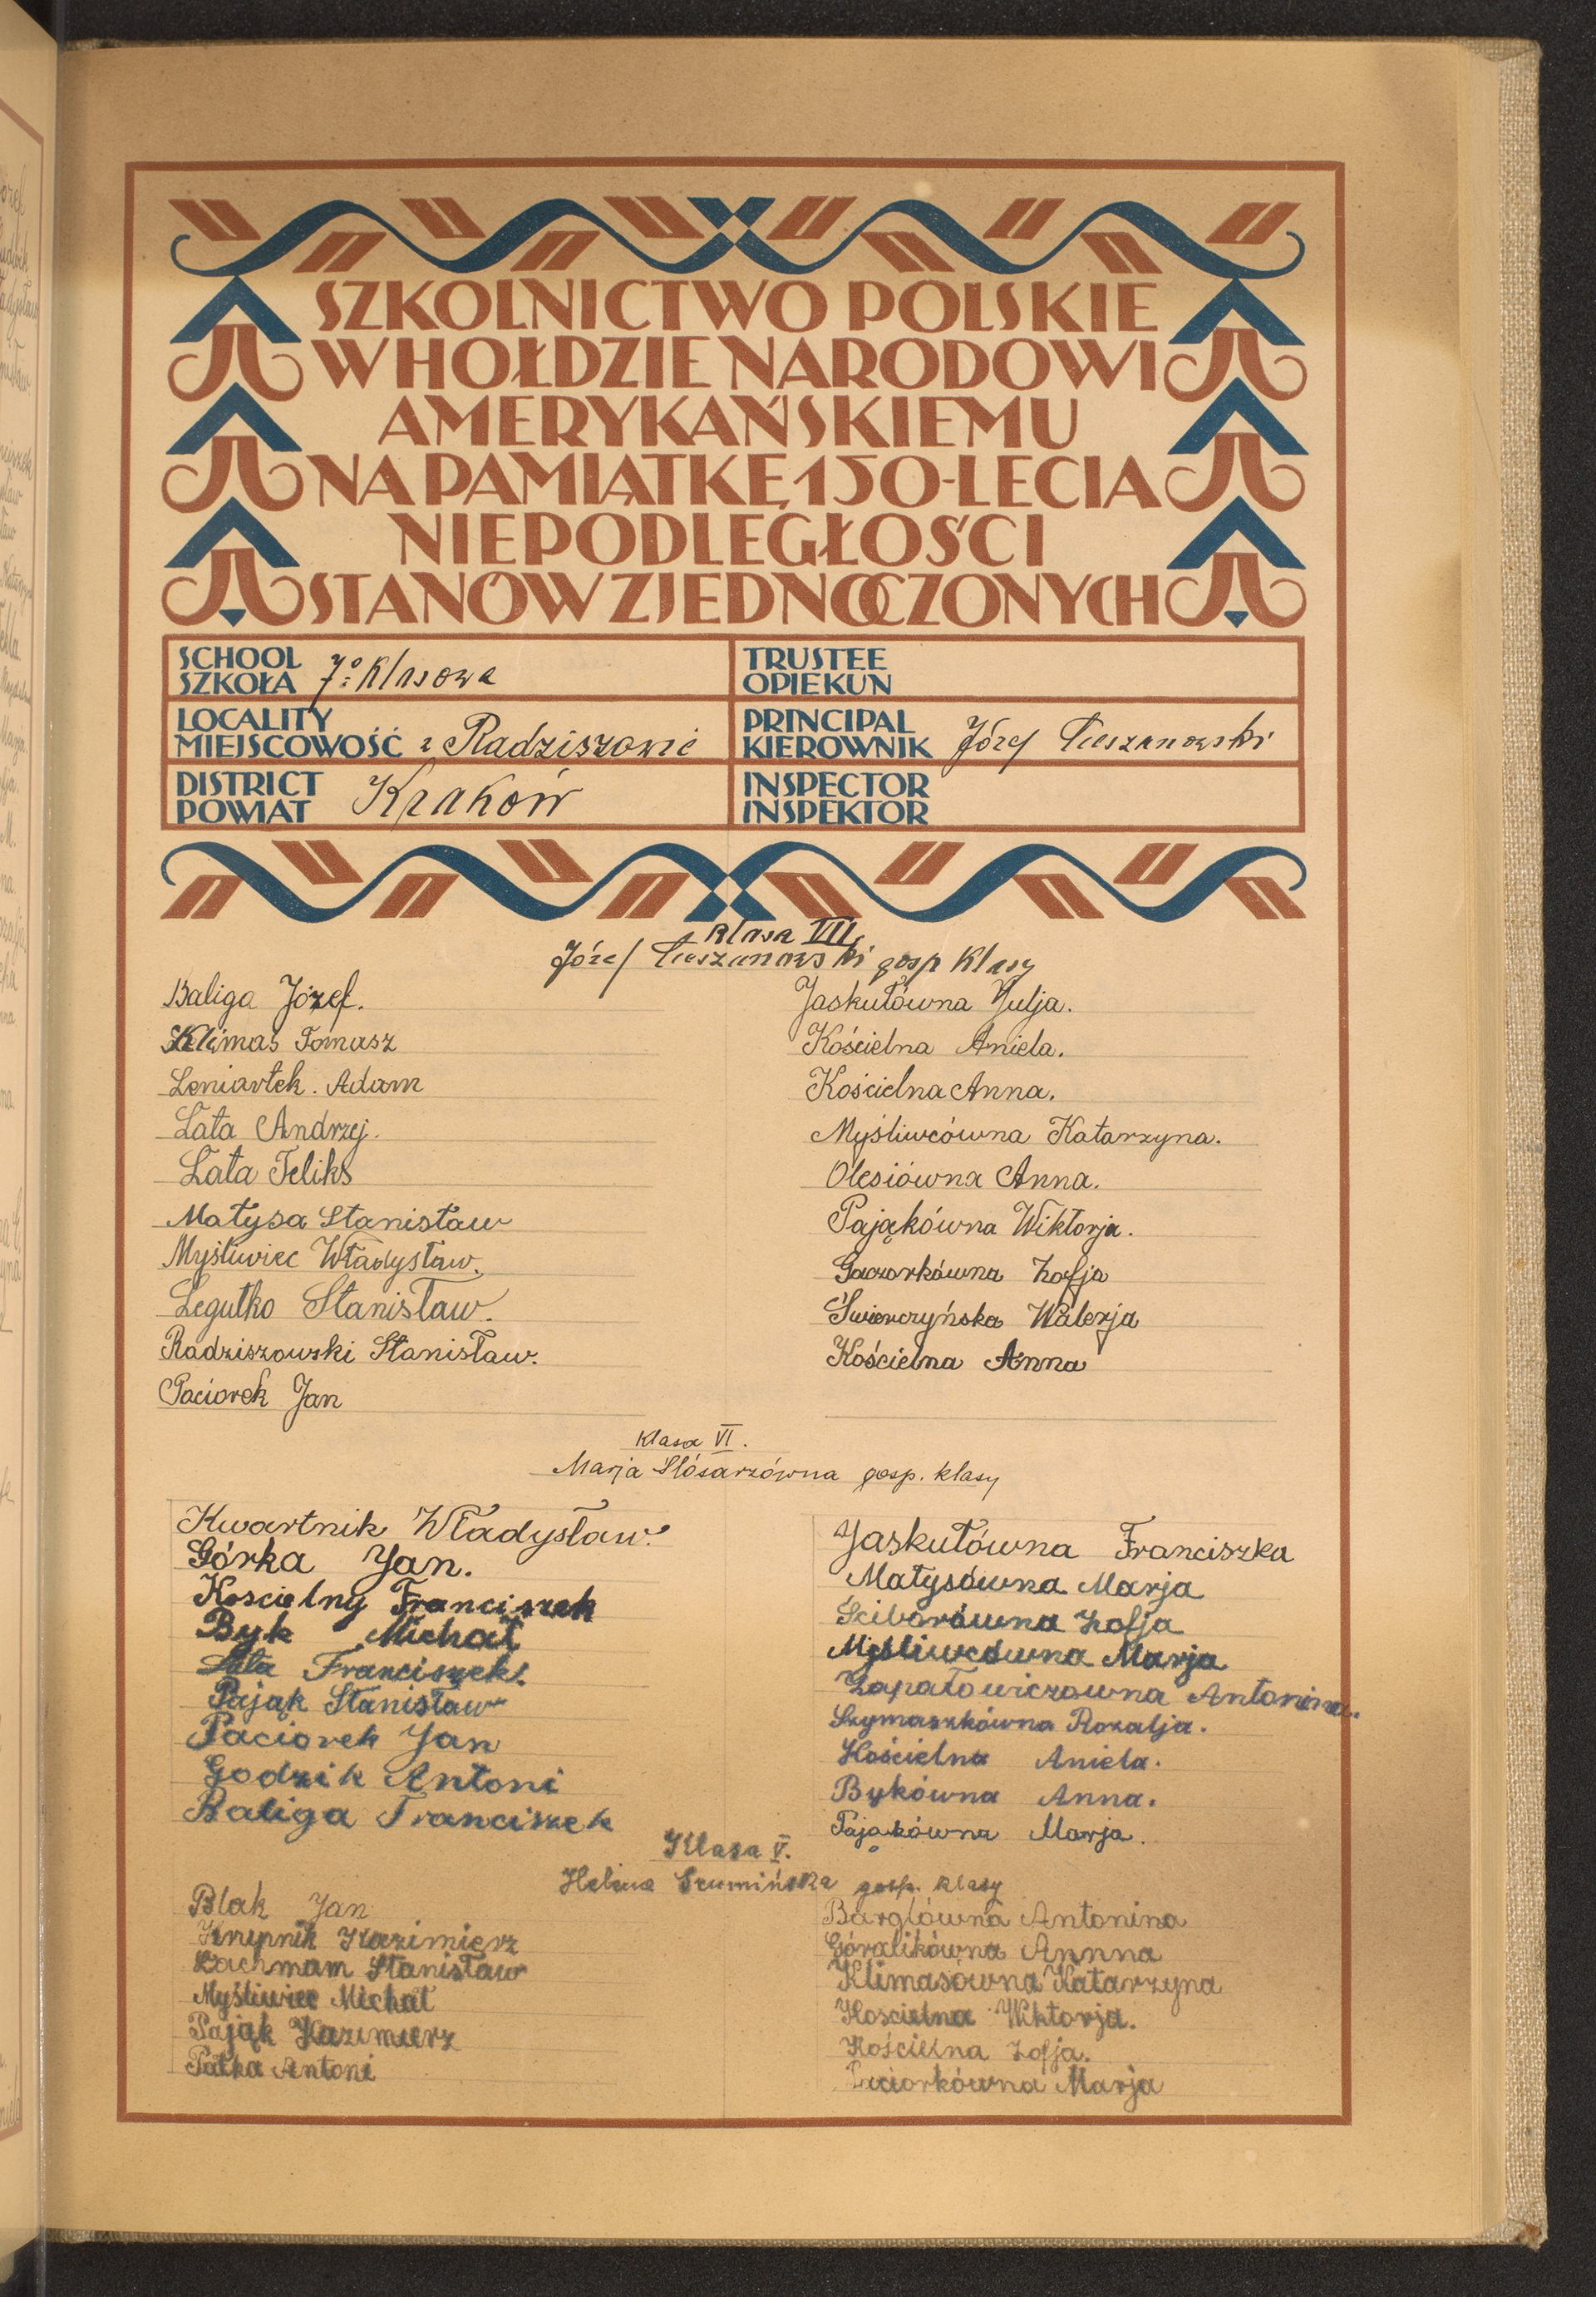 SZKOLNICTWO POLSKIE
W HOŁDZIE NARODOWI
AMERYKAŃSKIEMU
NA PAMIĄTKĘ 150-LECIA
NIEPODLEGŁOŚCI
STANÓW ZJEDNOCZONYCH
SCHOOL
SZKOŁA 7o klasowa
TRUSTEE
OPIEKUN
LOCALITY
MIEJSCOWOŚĆ z Radziszowie
PRINCIPAL
KIEROWNIK Józef Cieszanowski
DISTRICT
POWIAT Kraków
INSPECTOR
INSPEKTOR
klasa VII
Józef Cieszanowski gosp klasy
Baliga Józef.
Klimas Tomasz
Leniartek. Adam
Łata Andrzej.
Łata Feliks
Matysa Stanisław
Myśliwiec Władysław.
Legutko Stanisław.
Radziszowski Stanisław.
Paciorek Jan
Jaskułówna Julja.
Kościelna Aniela.
Kościelna Anna.
Myśliwcówna Katarzyna.
Olesiówna Anna.
Pająkówna Wiktorja.
Gaczorkówna Zofja
Świerczyńska Walerja
Kościelna Anna
Klasa VI.
Marja Slósarzówna gosp. klasy
Kwartnik Władysław.
Górka Jan.
Koscielny Franciszek
Byk Michał
Łata Franciszek.
Pająk Stanisław
Paciorek Jan
Godzik Antoni
Baliga Franciszek
Jaskułówna Franciszka
Matysówna Marja
Ściborówna Zofja
Myśliwcówna Marja
Łapatowiczowna Antonina.
Szymaszkówna Rozalja.
Kościelna Aniela.
Bykówna Anna.
Pająkówna Marja.
Klasa V.
Helena Szumińska gosp. klasy
Blak Jan
Krupnik Kazimierz
Lachmam Stanisław
Myśliwiec Michał
Pająk Kazimierz
Pałka Antoni
Bargłówna Antonina
Góralikówna Annna
Klimasówna Katarzyna
Koscielna Wiktorja.
Kościelna Zofja.
Paciorkówna Marja